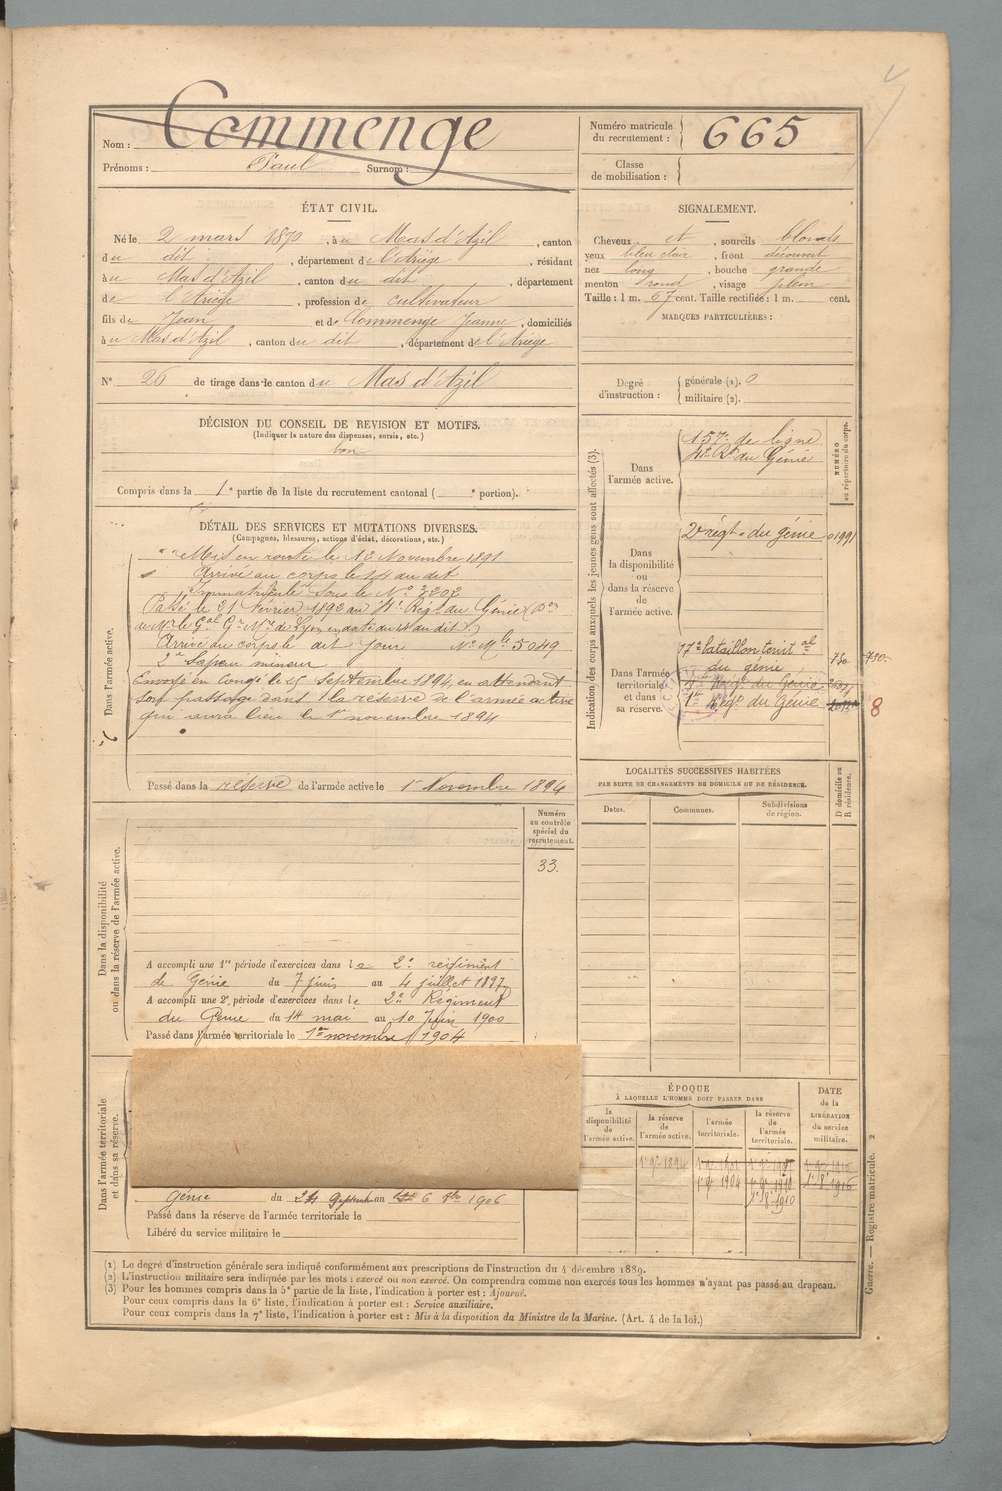 Nom : Commenge
Prénoms : Paul Surnom :
Numéro matricule du recrutement : 665
Classe de mobilisation :
ÉTAT CIVIL.
Né le 2 mars 1870, à u Mas d'Azil, canton
du dit, département de l'Ariège, résidant
à u Mas d'Azil, canton du dit, département
de l'Ariège, profession de cultivateur
fils de Jean et de Commenge Jeanne, domiciliés
à u Mas d'Azil, canton du dit, département de l'Ariège
N° 26 de tirage dans le canton du Mas d'Azil
SIGNALEMENT.
Cheveux et, sourcils blonds
yeux bleu clair, front découvert
nez long, bouche grande
menton rond, visage plein
Taille : 1 m. 67 cent. Taille rectifiée : 1 m. cent.
MARQUES PARTICULIÈRES :
Degré d'instruction : générale (1). 0
militaire (2).
DÉCISION DU CONSEIL DE REVISION ET MOTIFS.
(Indiquer la nature des dispenses, sursis, etc.)
bon
Compris dans la 1e partie de la liste du recrutement cantonal ( e portion).
DÉTAIL DES SERVICES ET MUTATIONS DIVERSES.
(Campagnes, blessures, actions d'éclat, décorations, etc.)
Dans l'armée active.
Mis en route le 12 Novembre 1891
Arrivé au corps le 14 au dit
Immatriculé sous le N° 3202
Passé le 21 Février 1892 au 4e Régt du Génie (Don
de Mr le Gal Gr Mre de Lyon en date du 14 au dit.)
Arrivé au corps le dit jour N° Mle 5049
2e Sapeur mineur
Envoyé en congé le 25 Septembre 1894, en attendant
son passage dans la réserve de l'armée active
qui aura lieu le 1er novembre 1894
Passé dans la réserve de l'armée active le 1er Novembre 1894
Indication des corps auxquels les jeunes gens sont affectés (3).
NUMÉRO au répertoire du corps.
Dans l'armée active.
157e de ligne
4e Rt du Génie
Dans la disponibilité ou dans la réserve de l'armée active.
2e régt du génie 01991
Dans l'armée territoriale et dans sa réserve.
17e bataillon territal
du génie 750 750
Régt du Génie
Régt du Génie 8
LOCALITÉS SUCCESSIVES HABITÉES
PAR SUITE DE CHANGEMENTS DE DOMICILE OU DE RÉSIDENCE.
Dates. Communes. Subdivisions de région. D domicile ou R résidence.
Dans la disponibilité ou dans la réserve de l'armée active.
Numéro au contrôle spécial du recrutement.
33.
A accompli une 1re période d'exercices dans le 2e régiment
de Génie du 7 juin au 4 juillet 1897
A accompli une 2e période d'exercices dans le 2e Régiment
du Génie du 14 mai au 10 Juin 1900
Passé dans l'armée territoriale le 1er novembre 1904
Dans l'armée territoriale et dans sa réserve.
Génie du 24 Septembre au 6 8bre 1906
Passé dans la réserve de l'armée territoriale le
Libéré du service militaire le
ÉPOQUE
À LAQUELLE L'HOMME DOIT PASSER DANS
la disponibilité de l'armée active.
la réserve de l'armée active.
l'armée territoriale.
la réserve de l'armée territoriale.
DATE de la LIBÉRATION du service militaire.
1er 9bre 1894
1er 9bre 1904
1er 8 1910
(1) Le degré d'instruction générale sera indiqué conformément aux prescriptions de l'instruction du 4 décembre 1889.
(2) L'instruction militaire sera indiquée par les mots : exercé ou non exercé. On comprendra comme non exercés tous les hommes n'ayant pas passé au drapeau.
(3) Pour les hommes compris dans la 5e partie de la liste, l'indication à porter est : Ajourné.
Pour ceux compris dans la 6e liste, l'indication à porter est : Service auxiliaire.
Pour ceux compris dans la 7e liste, l'indication à porter est : Mis à la disposition du Ministre de la Marine. (Art. 4 de la loi.)
Guerre. — Registre matricule. 2